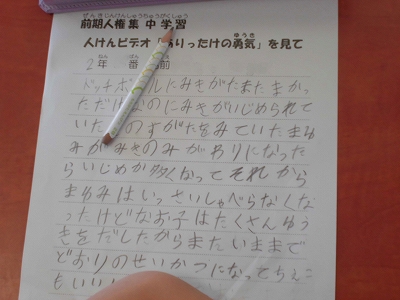 ぜんきじんけんしゅうちゅうがくしゅう
前期人権集中学習
ゆうき
人けんビデオ「ありったけの勇気」を見て
ねん ばん
2年 番 前
ドッチボールにみきがたまたまかっ
ただけなのにみきがいじめられて
いた そのすがたをみていたまゆ
みがみきのみがわりになった
らいじめが多くなってそれから
まゆみはいっさいしゃべらなくな
ったけどなお子はたくさんゆう
きをだしたからまたいままで
どおりのせいかつになってちえこ
もいい